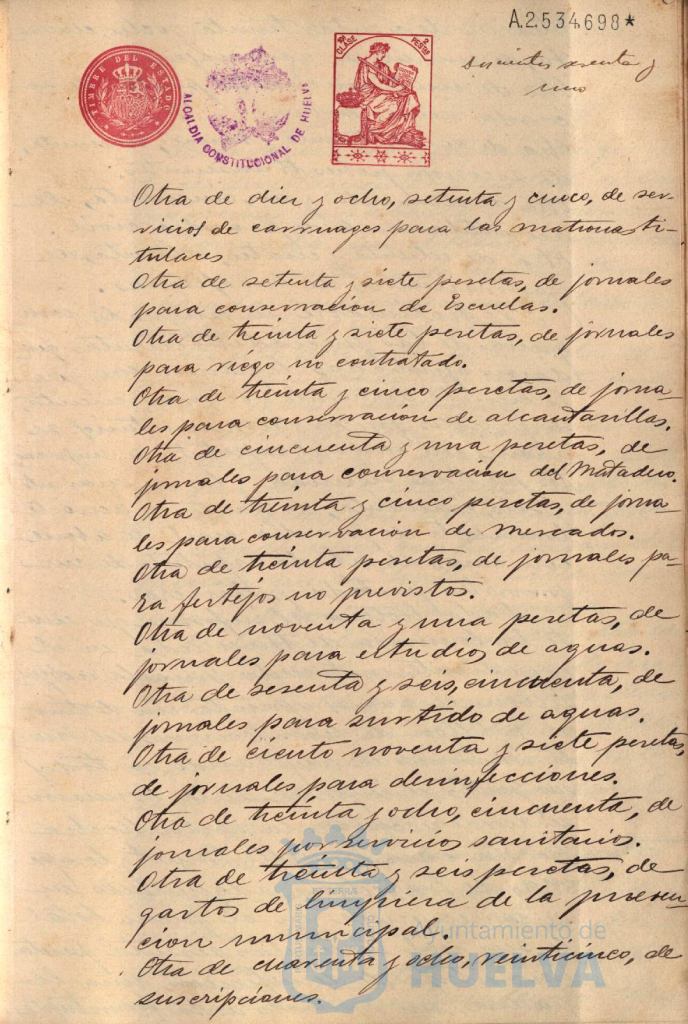 A.2.534.698*
TIMBRE DEL ESTADO
ALCALDIA CONSTITUCIONAL DE HUELVA
CLASE
PESETAS
doscientos sesenta y
uno
Otra de diez y ocho, setenta y cinco, de ser-
vicios de carruages para las matronas ti-
tulares
Otra de setenta y siete pesetas, de jornales
para conservacion de Escuelas.
Otra de treinta y siete pesetas, de jornales
para riego no contratado.
Otra de treinta y cinco pesetas, de jorna-
les para conservación de alcantarillas.
Otra de cincuenta y una pesetas, de
jornales para conservacion del Matadero.
Otra de treinta y cinco pesetas, de jorna-
les para conservación de mercados.
Otra de treinta pesetas, de jornales pa-
ra festejos no previstos.
Otra de noventa y una pesetas, de
jornales para estudios de aguas.
Otra de sesenta y seis, cincuenta, de
jornales para surtido de aguas.
Otra de ciento noventa y siete pesetas,
de jornales para desinfecciones.
Otra de treinta y ocho, cincuenta, de
jornales por servicios sanitarios.
Otra de treinta y seis pesetas, de
gastos de limpieza de la preven-
cion municipal.
Otra de cuarenta y ocho, veinticinco, de
suscripciones.
Ayuntamiento de
HUELVA